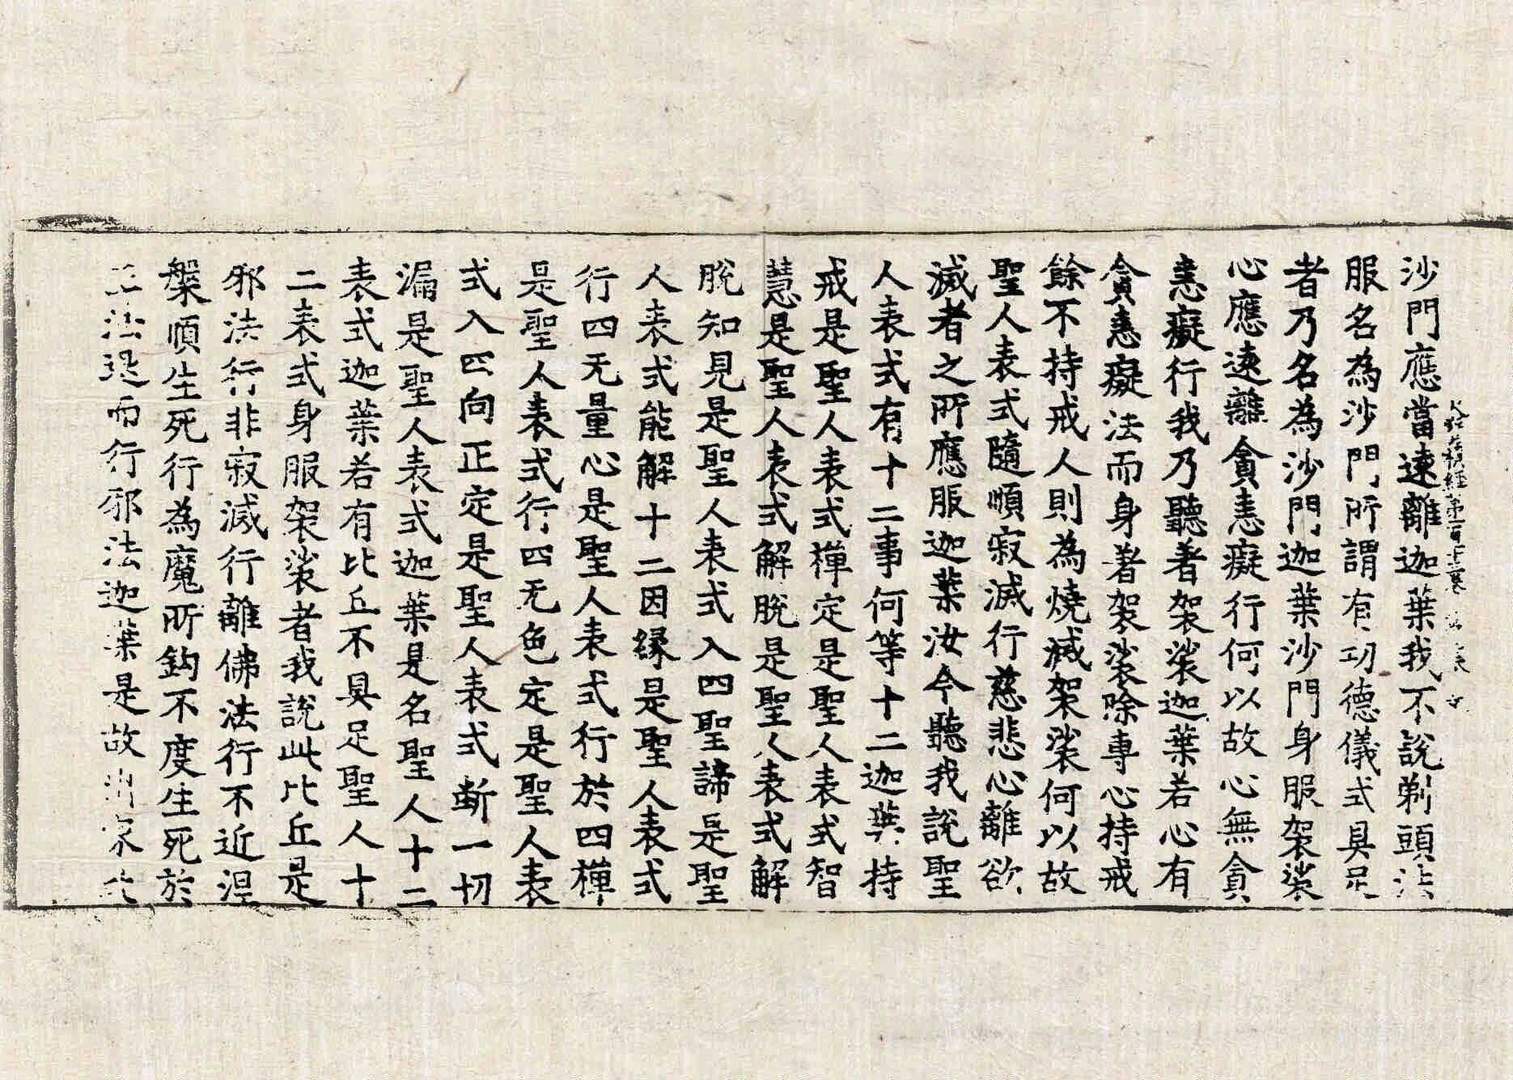 沙門應當遠離迦葉我不說剃頭法
大寶積經第一百十三卷
服名為沙門所謂有功德儀式具足
者乃名為沙門迦葉沙門身服袈裟
心應遠離貪恚癡行何以故心無貪
恚癡行我乃聽著袈裟迦葉若心有
貪恚癡法而身著袈裟除專心持戒
餘不持戒人則為燒滅袈裟何以故
聖人表式隨順寂滅行慈悲心離欲
滅者之所應服迦葉汝今聽我說聖
人表式有十二事何等十二迦葉持
戒是聖人表式禪定是聖人表式智
慧是聖人表式解脫是聖人表式解
脫知見是聖人表式入四聖諦是聖
人表式能解十二因緣是聖人表式
行四无量心是聖人表式行於四禪
是聖人表式行四无色定是聖人表
式入四向正定是聖人表式斷一切
漏是聖人表式迦葉是名聖人十二
表式迦葉若有比丘不具足聖人十
二表式身服袈裟者我說此比丘是
邪法行非寂滅行離佛法行不近涅
槃順生死行為魔所鈎不度生死於
正法退而行邪法迦葉是故出家